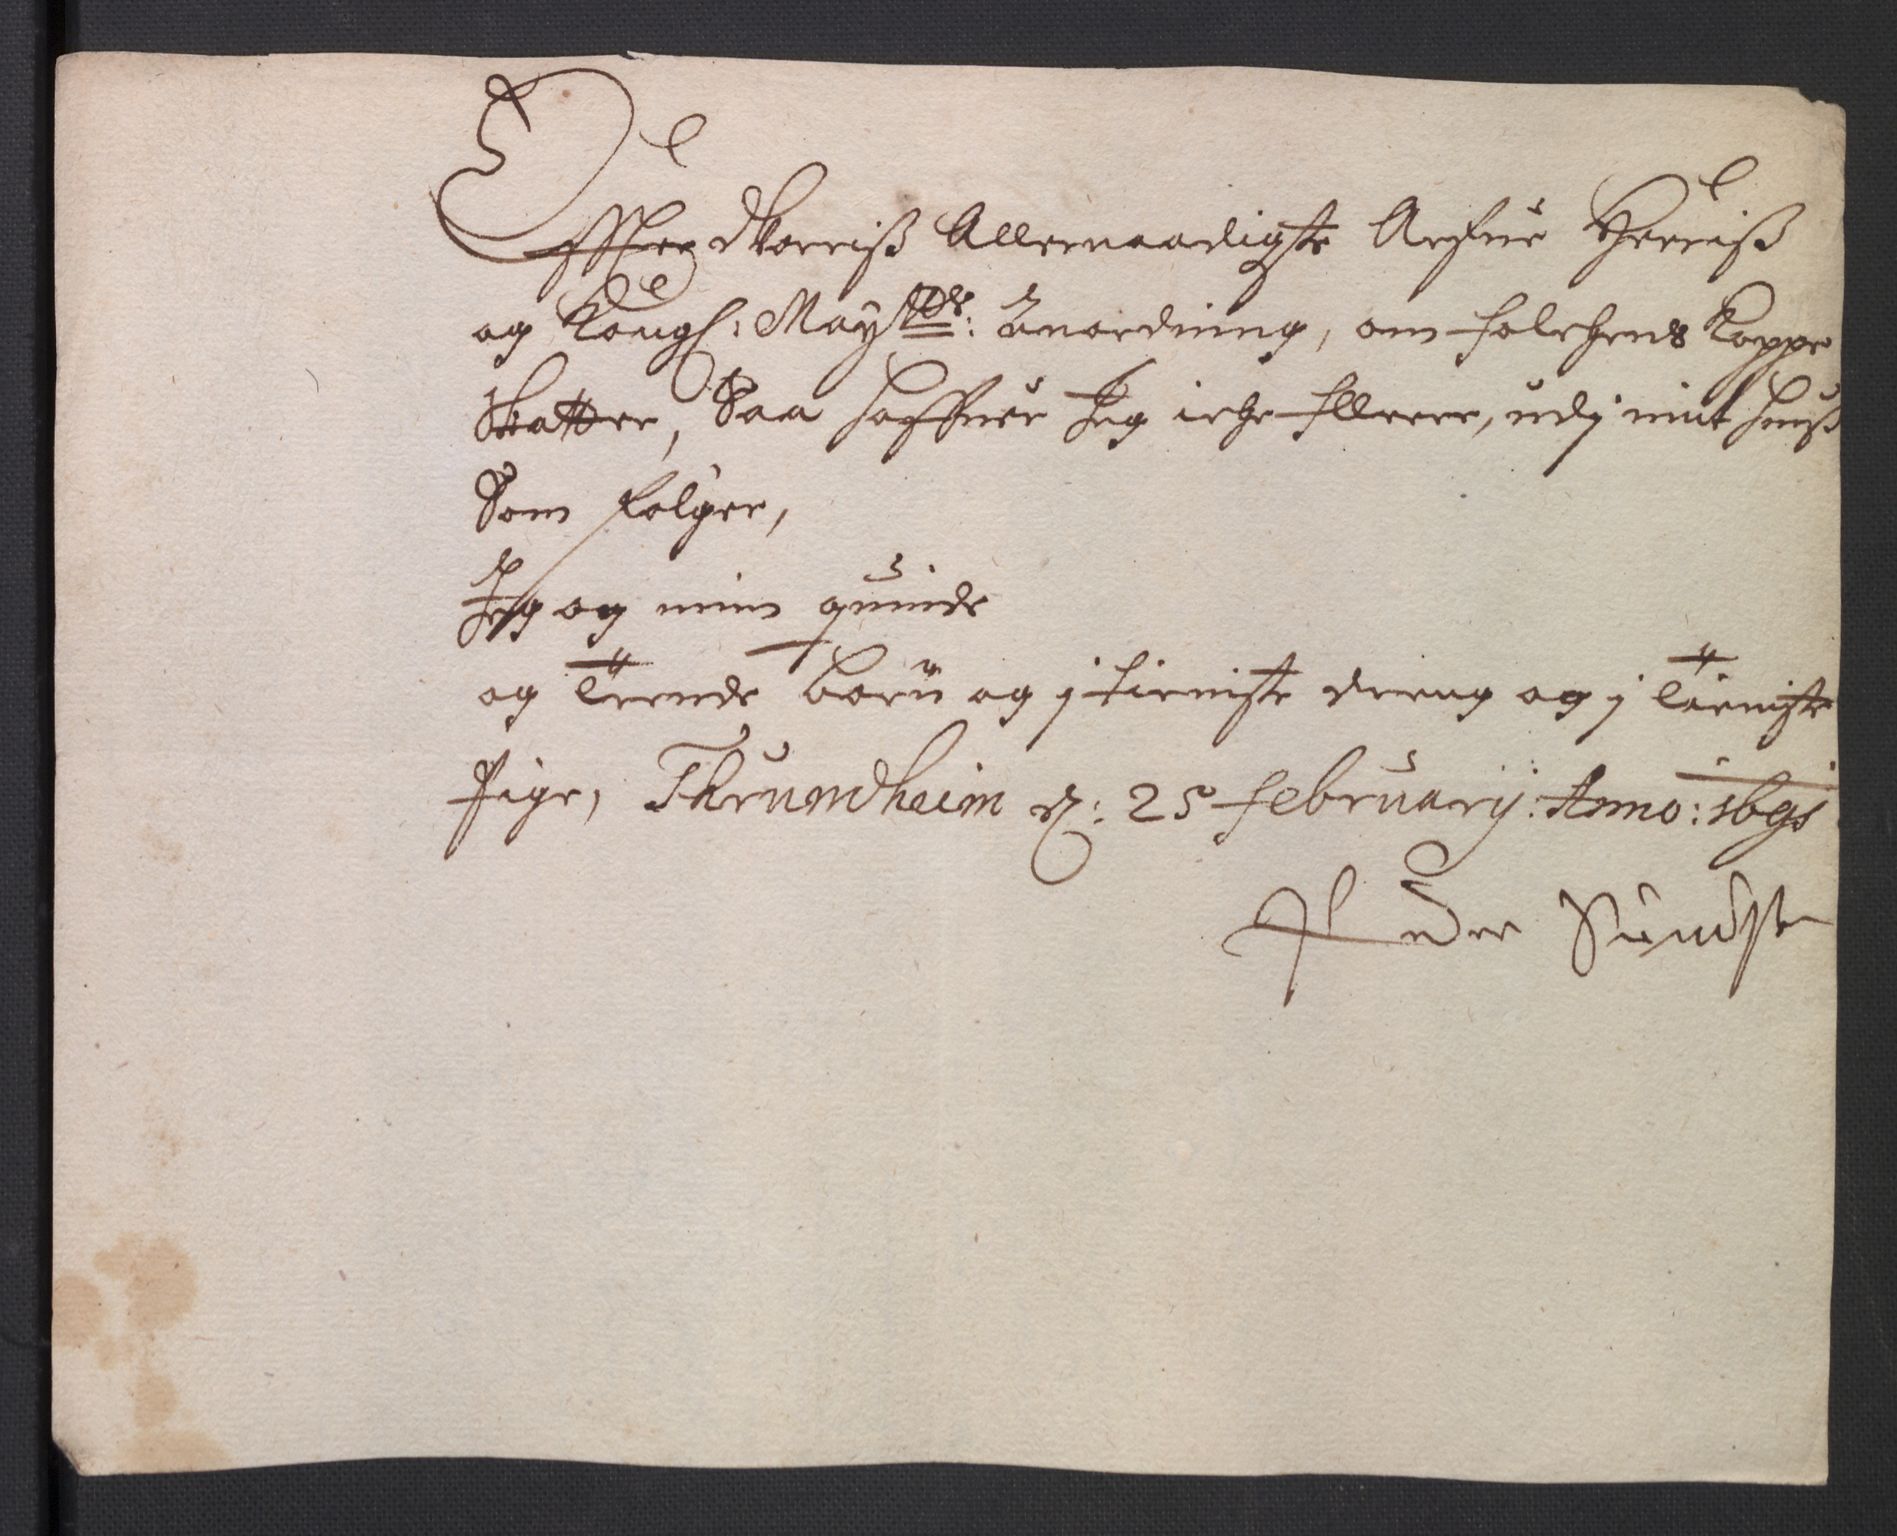 Effter Worriß Allernaadigste Arfue Herriß
og Kongl: Mayttds: Anordning, om folchens Koppe
Skatter, Saa haffuer Jeg iche flleere, udj mit Huuß
Som følger,
Jeg og min quinde
og Trende børn og j tieniste dreng og j Tieniste
Pige, Thrundheim d: 25 februarij: Anno: 1691
Peder Sundst